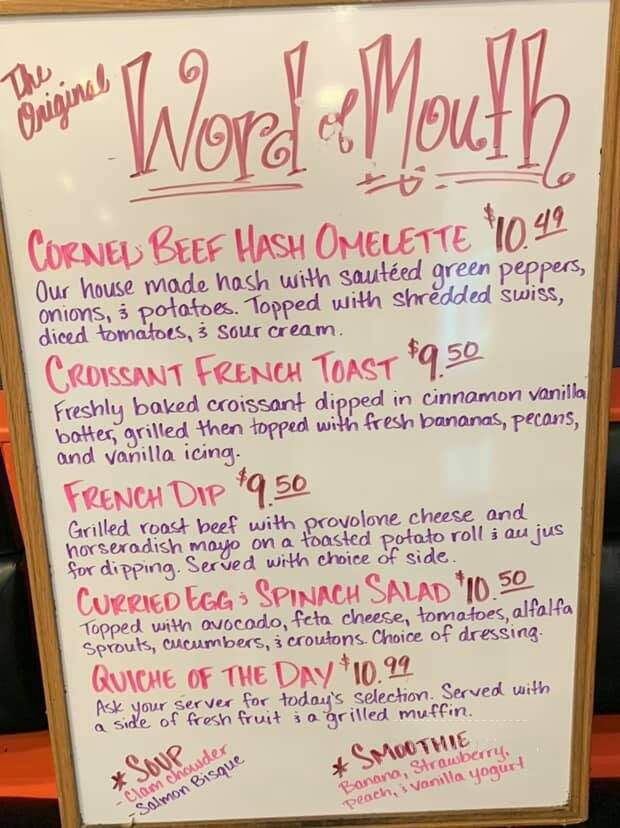 The
Original
Word of Mouth
CORNED BEEF HASH OMELETTE $10.49
Our house made hash with sautéed green peppers,
onions, & potatoes. Topped with shredded swiss,
diced tomatoes, & sour cream.
CROISSANT FRENCH TOAST $9.50
Freshly baked croissant dipped in cinnamon vanilla
batter, grilled then topped with fresh bananas, pecans,
and vanilla icing.
FRENCH DIP $9.50
Grilled roast beef with provolone cheese and
horseradish mayo on a toasted potato roll & au jus
for dipping. Served with choice of side.
CURRIED EGG & SPINACH SALAD $10.50
Topped with avocado, feta cheese, tomatoes, alfalfa
sprouts, cucumbers, & croutons. Choice of dressing.
QUICHE OF THE DAY $10.99
Ask your server for today's selection. Served with
a side of fresh fruit & a grilled muffin.
* SOUP
- Clam chowder
- Salmon Bisque
* SMOOTHIE
Banana, Strawberry,
Peach, & vanilla yogurt